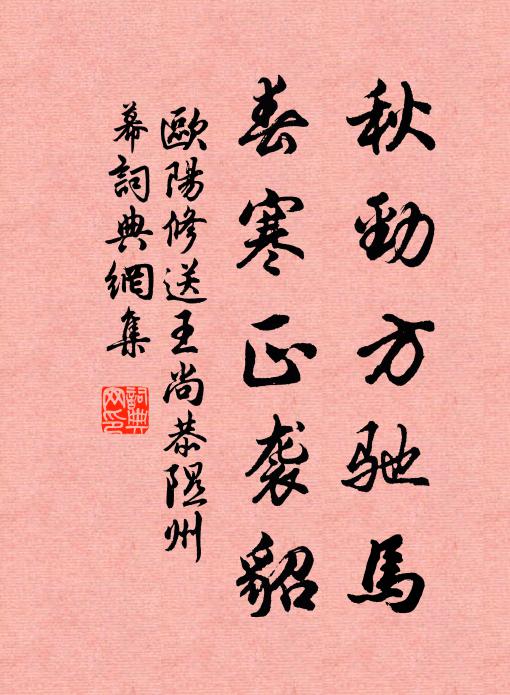 秋勁方馳馬
春寒正袭貂
歐陽修送王尚恭隰州
幕詞典網集
詞典
网印